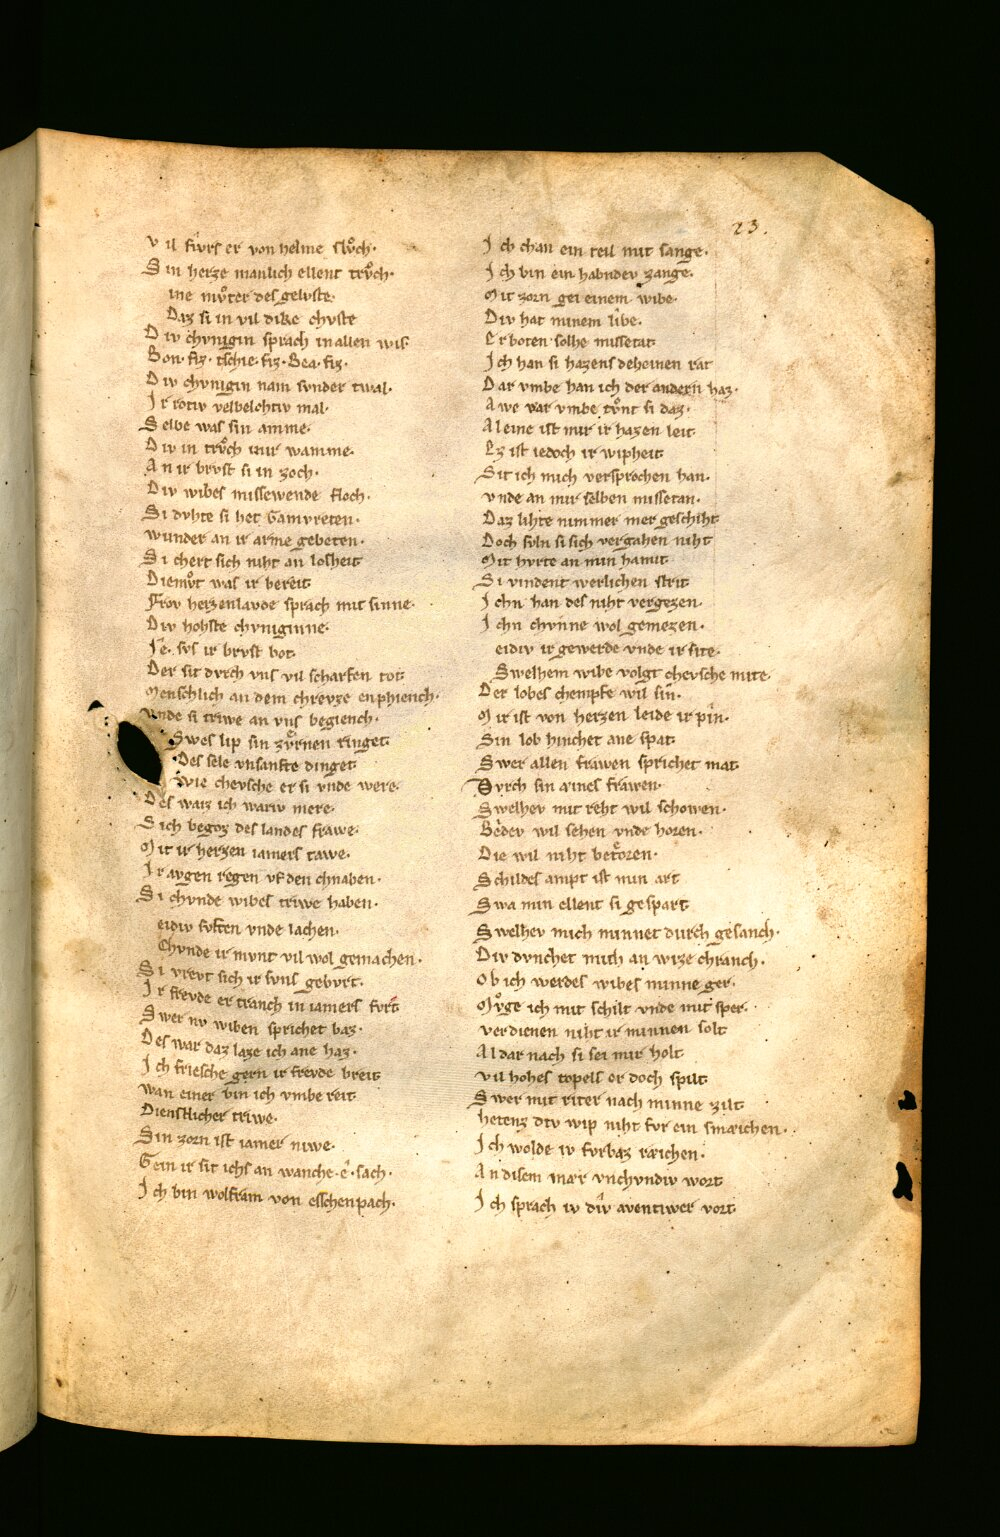 23.
vil fiwrs er von helme slvͦch·
Sin herze manlich ellent trvͦch·
ine mvͦter des gelvste·
Daz si in vil dike chvste
Div chvnigin sprach in allen wis
Bon· fiz· tschie· fiz· Bea· fiz·
Div chvnigin nam svnder twal·
Ir rotiv velbelohtiv mal·
Selbe was sin amme·
Div in trvͦch inir wamme·
An ir brvst si in zoch·
Div wibes missewende floch·
Si dvhte si het Gamvreten·
wunder an ir arme gebeten·
Si chert sich niht an losheit
Diemvͦt was ir bereit
Frov herzenlavde sprach mit sinne·
Div hohste chvniginne·
Ie· svs ir brvst bot
Der sit dvrch vns vil scharfen tot
Menschlich an dem chrevze enphiench·
vnde si triwe an vns begiench·
Swes lip sin zvͤrnen ringet
Des sele vnsanfte dinget
wie chevsche er si vnde were·
Des waiz ich wariv mere·
Sich begoz des landes frawe·
Mit ir herzen iamers tawe·
Ir avgen regen vf den chnaben·
Si chvnde wibes triwe haben·
eidiv svften vnde lachen·
Chvnde ir mvnt vil wol gemachen·
Si vrevt sich ir svns gebvrt·
Ir frevde er tranch in iamers fvrt
Swer nv wiben sprichet baz·
Des war daz laze ich ane haz·
Ich friesche gern ir frevde breit
wan einer bin ich vmbe reit
Dienstlicher triwe·
Sin zorn ist iamer niwe·
Gein ir sit ichs an wanche· e· sach·
Ich bin wolfram von esschenpach·
Ich chan ein teil mit sange·
Ich bin ein habndev zange·
Mit zorn gei einem wibe·
Div hat minem libe·
Erboten solhe missetat
Ich han si hazens deheinen rat
Dar vmbe han ich der andern haz·
Awe var vmbe tvͦnt si daz·
Aleine ist mir ir hazen leit
Ez ist iedoch ir wipheit
Sit ich mich versprochen han·
vnde an mir selben missetan·
Daz lihte nimmer mer geschiht
Doch svln si sich vergahen niht
Mit hvrte an min hamit
Si vindent werlichen strit
Ichn han des niht vergezen·
Ichn chvnne wol gemezen·
eidiv ir gewerde vnde ir site·
Swelhem wibe volgt chevsche mite·
Der lobes chempfe wil sin·
Mir ist von herzen leide ir pin·
Sin lob hinchet ane spat
Swer allen frawen sprichet mat
Dvrch sin aines frawen·
Swelhev mit reht wil schowen·
Bedev wil sehen vnde horen·
Die wil niht betoren·
Schildes ampt ist min art
Swa min ellent si gespart
Swelhev mich minnet durch gesanch·
Div dvnchet mich an wize chranch·
Ob ich werdes wibes minne ger·
Mvͦge ich mit schilt vnde mit sper·
verdienen niht ir minnen solt
Al dar nach si sei mir holt
vil hohes topels er doch spilt
Swer mit riter nach minne zilt
hetenz div wip niht fvr ein smæichen·
Ich wolde iv fvrbaz ræichen·
An disem mær vnchvndiv wort
Ich sprach iv div aventiwer vort